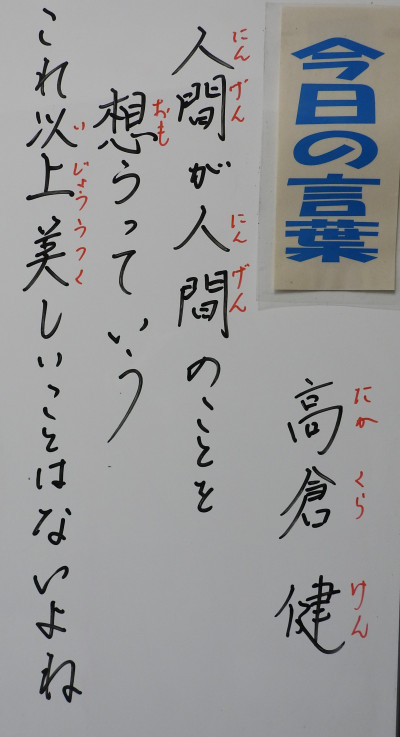 今日の言葉
高倉健
たかくらけん
人間が人間のことを
にんげんにんげん
想うっていう
おも
これ以上美しいことはないよね
いじょううつく